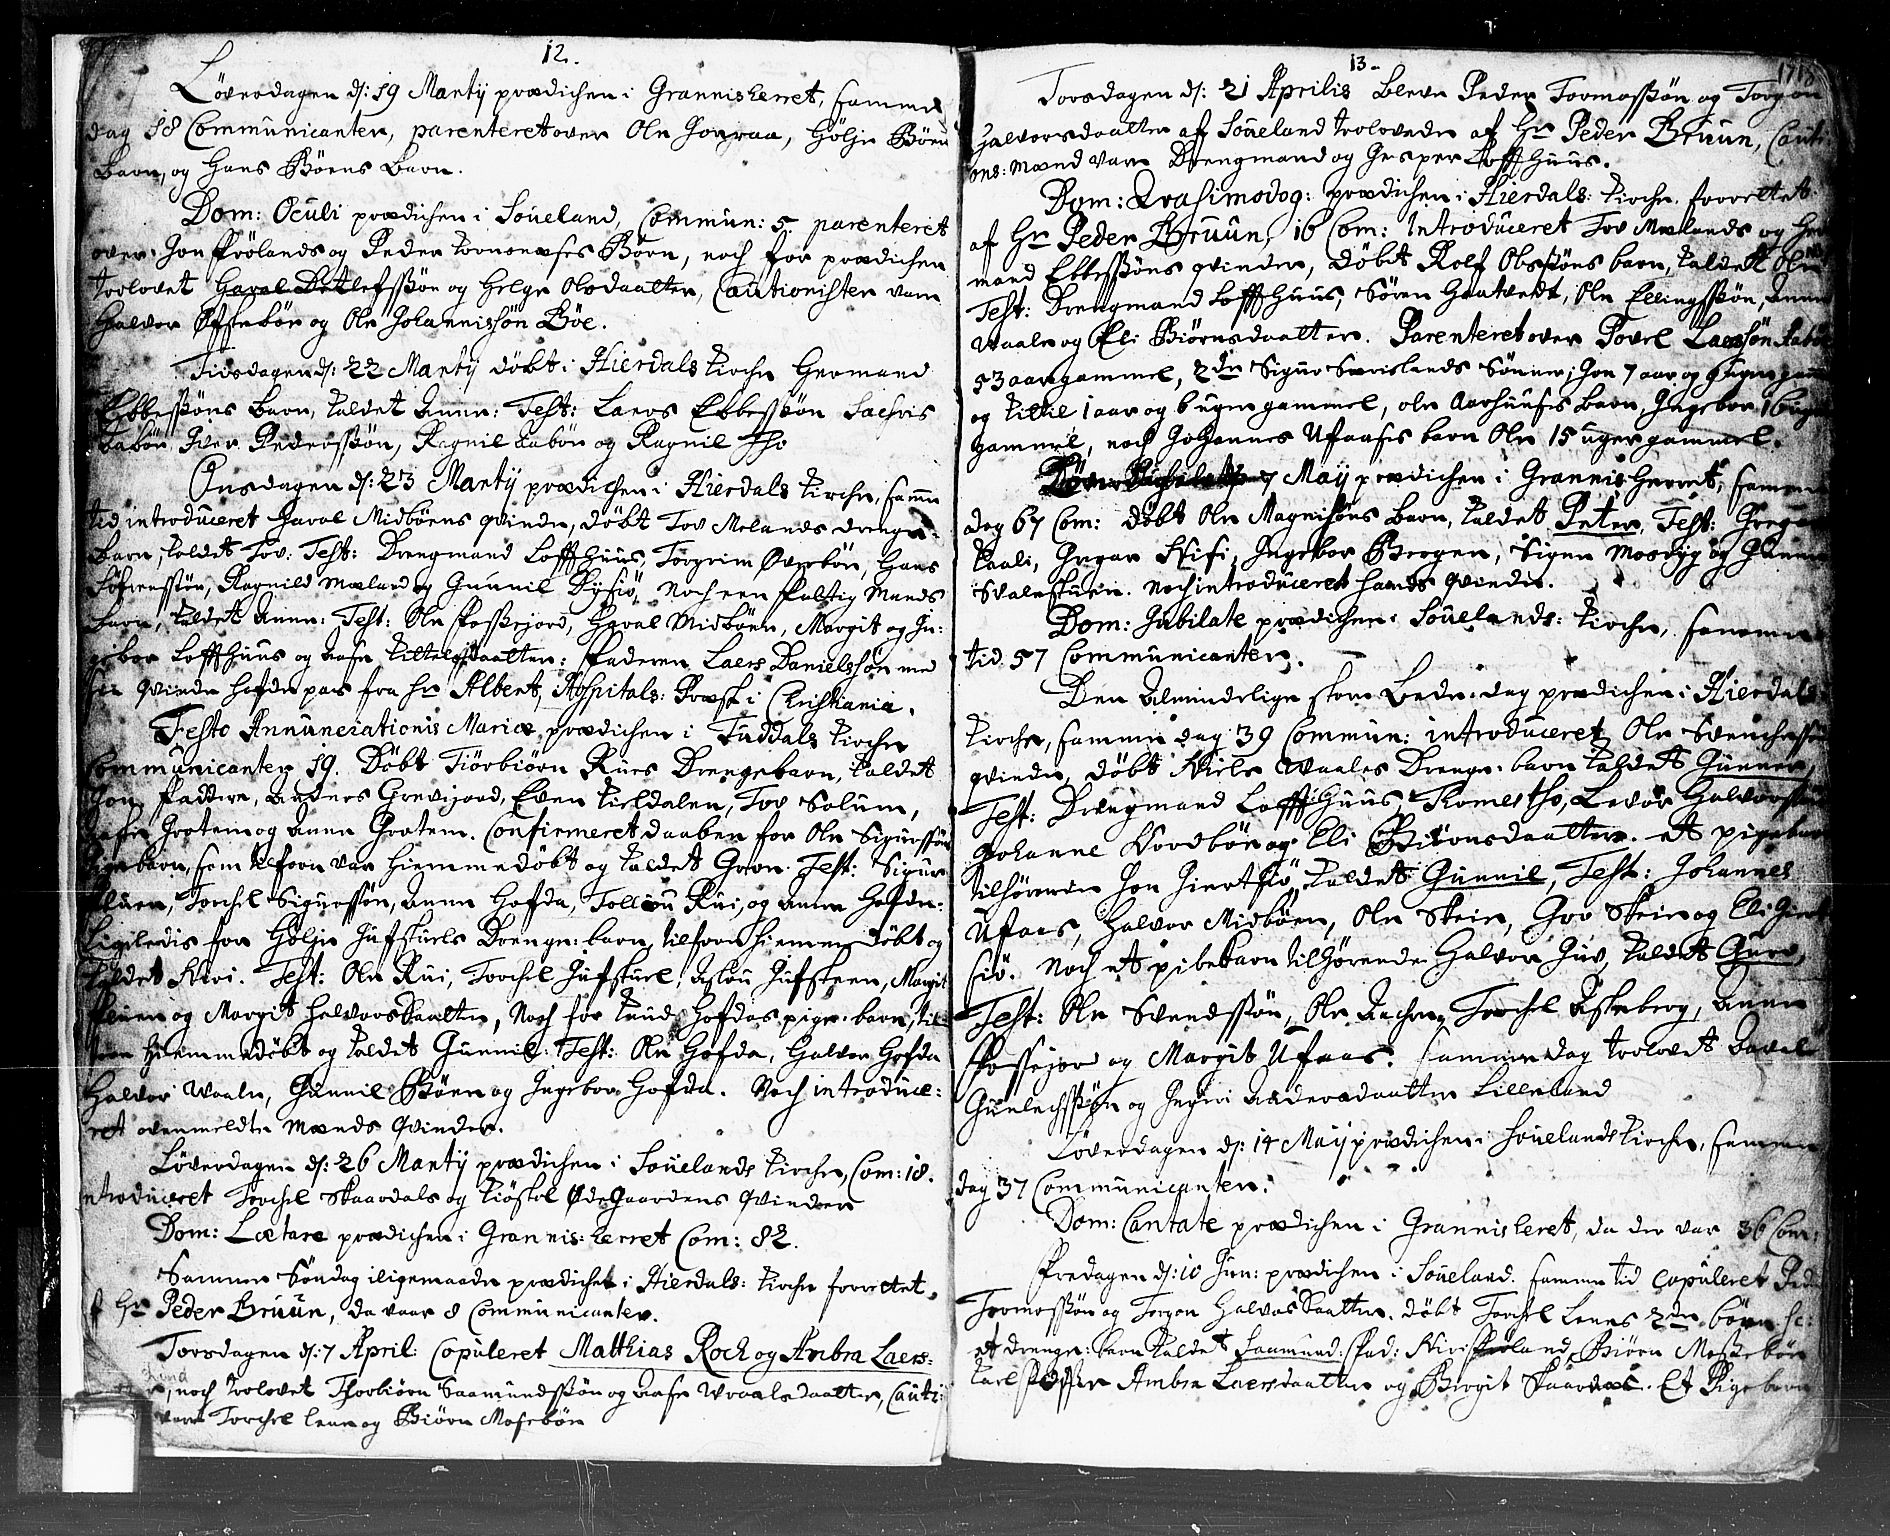 12.
Löverdagen d: 19 Martij prædichen i Grannisherret, samme
dag 18 Communicanter, parenteret over Ole Gonraa, Hölje Böens
Barn, og Hans Böens Barn.
Dom: Oculi prædichen i Soueland, Commun: 5. parenteret
over Jon Frölands og Peder Börn, noch for prædichen
troloved Detlefssön og Helge Olsdaatter, Cautionister vare
Halvor Öfstebön og Ole Johannissön Böe.
Tisdagen d: 22 Martij döbt i Hierdals Kirche Hermand
Ebbessöns Barn, kaldet Anne: Test: Laers Ebbessön
Iver Pederssön, Ragnil og Ragnil Tho
Onsdagen d: 23 Martij prædichen i Hierdals Kirche, samme
tid introduceret Midböens qvinde, döbt Tov Melands drenge
Barn, kaldet Tov: Test: Drengmand Loffthuus, Torgrim Överbön, Hans
Ragnild Mæland og Gunnil Noch een Mands
Barn, kaldet Anne: Test: Ole Midböen, Margit og In:
gebor Loffthuus og Kittelsdaatter: Faderen Laers Danielssön med
sin qvinde hafde pas fra Hr Albert, Hospitals: Præst i Christiania.
Festo Annunciationis Mariæ, prædichen i Tuddals Kirche
Communicanter 19. Döbt Tiörbiörn Rues Drengebarn, kaldet
Jon, Faddere, Anders Grevijord, Even Kieldalen, Tov Solum,
Grotem og Anne Grotem. Confirmeret daaben for Ole Sigurssöns
Pigebarn, som tilforn var hiemmedöbt og kaldet Test: Sigur
Torchel Sigurssön, Anne Hofda, Rui, og Anne Hofde:
Ligiledis for Hölje Drenge: barn, tilforn hiemmedöbt og
kaldet Test: Ole Rui, Torchel Margit
og Margit Halvorsdaatter, Noch for Knud Hofdas pige: barn, til:
forn hiemmedöbt og kaldet Gunnil: Test: Ole Hofda, Halvor Hofda
Halvor Waale, Gunnil Böen og Ingebor Hofda. Noch introduce:
ret ovenmeldte Mænds Qvinder.
Löverdagen d: 26 Martij prædichen i Souelands Kirche, Com: 18.
introduceret Torchel Skaardals og Ödegaardens Qvinder
Dom: Lætare prædichen i Grannis: herret Com: 82.
Samme Söndag iligemaade prædichet i Hierdals: Kirche forrettet
af Hr Peder Bruun, da vaar 8 Communicanter.
Torsdagen d: 7 April: Copuleret Matthias Roch og Ambra Laers:
noch trolovet Thorbiörn Saamundssön og Wraalsdaatter, Cauti:
vare Torchel og Biörn Mosebön
13.
1718
Torsdagen d: 21 Aprilis bleve Peder Tormossön og Torgon
Halvorsdaatter af Soueland trolovede af Hr Peder Bruun, Cauti
ons: Mænd vare Drengmand og Jesper Loffthuus.
Dom: Qvasimodog: prædichen i Hierdals: Kirche forrettet
af Hr Peder Bruun, 16 Com: Introduceret Tov Mælands og Her
mand Ebbessöns qvinder, döbt Rolf Olssöns barn, kaldet Ole
Test: Drengmand Loffthuus, Sören Graatvedt, Ole Ellingssön, Anne
Waale og Eli Biörnsdaatter. Parenteret over Povel Laerssön
53 aar gammel, 2de Sigur Sönner, Jon 7 aar og uger gammel
og Kittil 1 aar og 6 uger gammel, Ole Aarhuuses barn, Ingebor 16 uger
gammel, noch Johannes Ufaases barn Ole 15 uger gammel.
7 Maij prædichen i Grannisherret, samme
dag 67 Com: döbt Ole Magnisöns barn, kaldet Peter, Test: Gregar
Kaali, Gregar Ingebor Bergen, Signe og Gunne
Noch introduceret hands qvinde.
Dom: Jubilate prædichen i Souelands: Kirche, samme
tid 57 Communicanter.
Den Almindelige store Bede: dag prædichen i Hierdals
Kirche, samme dag 39 Commun: introduceret Ole Svenchessöns
qvinde, döbt Niels Waales Drenge: barn kaldet Gunner,
Test: Drengmand Loffthuus, Thomes Tho, Levor Halvorssön
Johanne Nordbön og Eli Biörnsdaatter. et pigebarn
tilhörende Jon Hiertsiö, kaldet Gunnil, Test: Johannes
Ufaas, Halvor Midböen, Ole Skeie, Gro Skeie og Eli Hiert
siö. Noch et pigebarn tilhörende Halvor Juv, kaldet Guro,
Test: Ole Svendssön, Ole Torchel Askeberg, Anne
og Margit Ufaas. samme dag trolovet
Gunlechssön og Ingeri Andersdaatter Lilleland
Löverdagen d: 14 Maij prædichen i Souelands Kirche, samme
dag 37 Communicanter.
Dom: Cantate prædichen i Grannisherret, da der var 36 Com:
Fredagen d: 10 Jun: prædichen i Soueland. samme tid copuleret Peder
Tormossön og Torgon Halvorsdaatter. döbt Torchel 2de börn sc:
et drenge: barn kaldet Saamund: Fad: Biörn Mosebön
Ambra Laersdaatter og Birgit Skaardal. Et Pigebarn